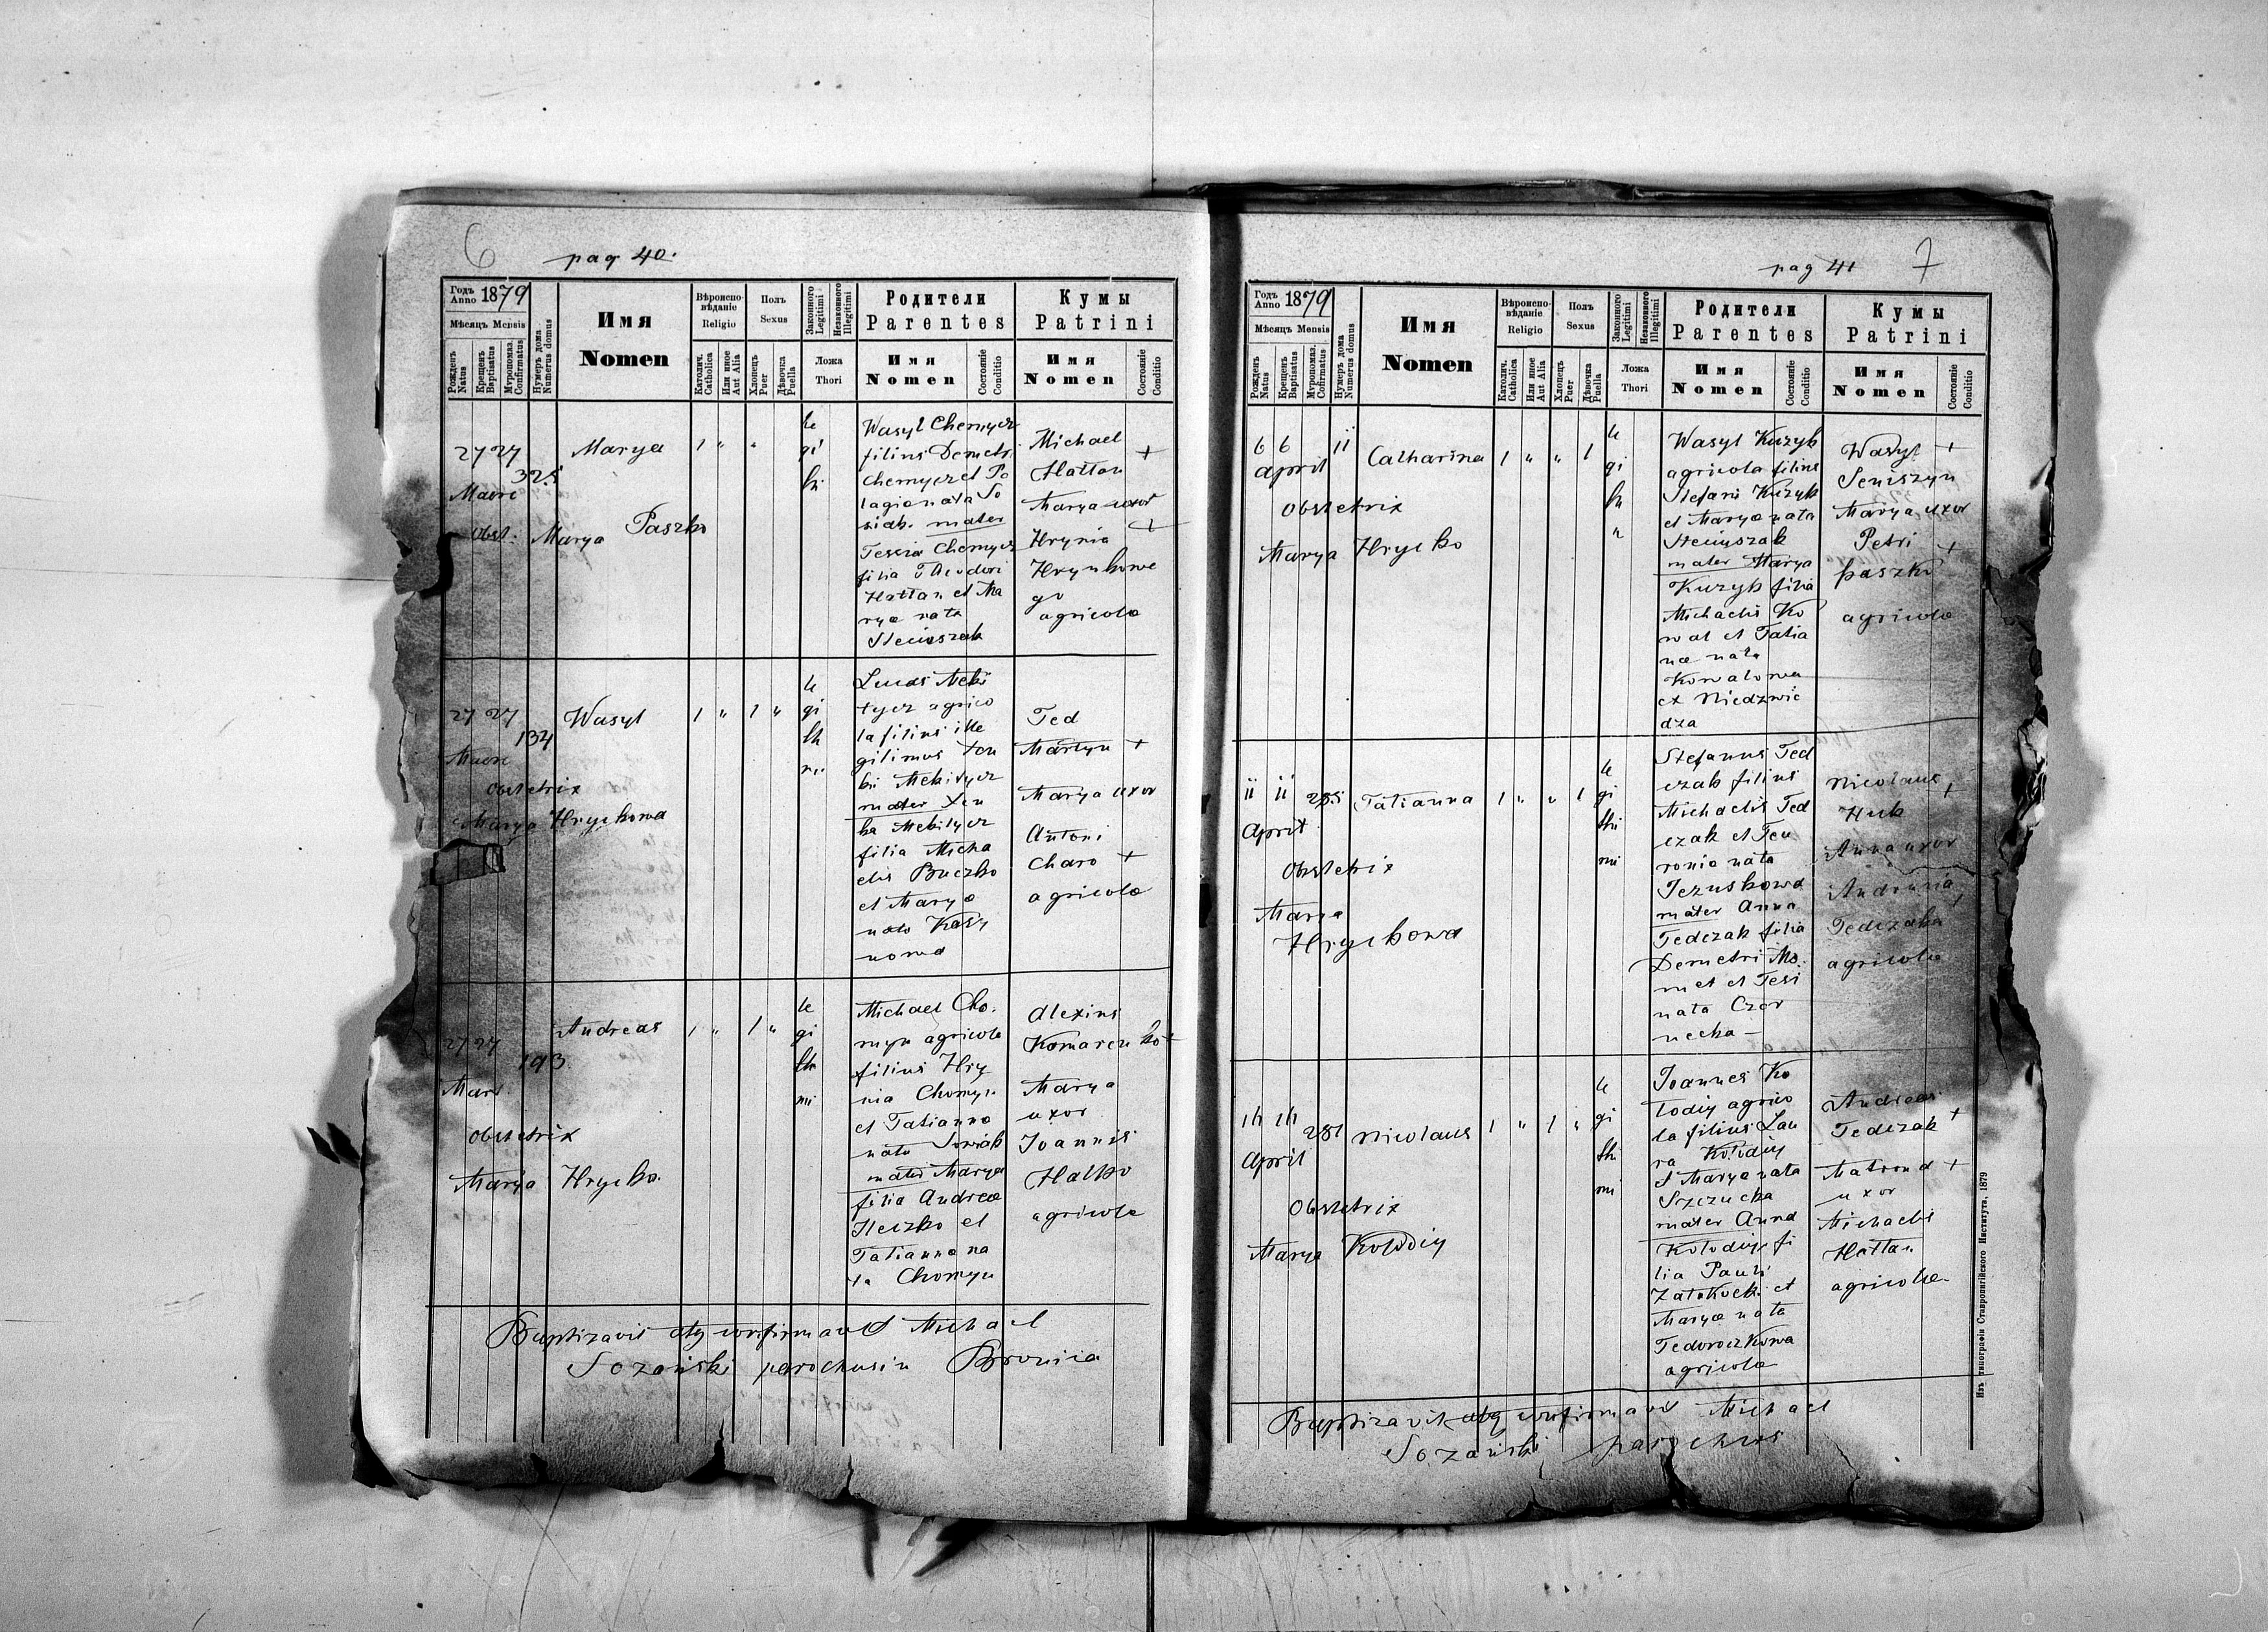 6
pag 40.
Годъ
Anno 1879
Мѣсяцъ Mensis
Рожденъ
Natus
Крещенъ
Baptisatus
Мѵропомаз.
Confirmatus
Нумеръ дома
Numerus domus
Имя
Nomen
Вѣроиспо-
вѣданіе
Religio
Католич.
Catholica
Или иное
Aut Alia
Полъ
Sexus
Хлопецъ
Puer
Дѣвочка
Puella
Законного
Legitimi
Незаконного
Illegitimi
Ложа
Thori
Родители
Parentes
Имя
Nomen
Состояніе
Conditio
Кумы
Patrini
Имя
Nomen
Состояніе
Conditio
27 27
325
Obst. Marya Paszko
Marya
1 "
le
gi
Wasyl Chemycz
filius Demetri
Chemycz et Pe
lagia nata So
siak. mater
Tesia Chemycz
filia Theodori
Hattan et Ma
rya nata
Steciuszak
Michael +
Hattan
Marya uxor
Hrynia +
Hrynkowe
go
agricola
27 27
134
Obstetrix
Marya Hryckowa
Wasyl
1 " 1 "
le
gi
th
mi
Lucas Meki
tycz agrico
la filius ille
gitimus
Mekitycz
mater Xen
ka Mekitycz
filia Micha
elis Buczko
et Marya
nata Kasy
nowa
Fed
Martyn +
Marya uxor
Antoni
Charo +
agricola
27 27
193
Mart
Obstetrix
Marya Hrycko.
Andreas
1 " 1 "
le
gi
th
mi
Michael Cho.
myn agricola
filius Hry
nia Chomyn
et Tatianna
nata Sosiak
mater Marya
filia Andreae
Heczko et
Tatianna na
ta Chomyn
Alexius
Komarenko +
Marya
uxor
Joannis
Halko
agricola
Baptizavit atq confirmavit Michael
Sozański parochus in Bronica
pag 41
7
Годъ
Anno 1879
Мѣсяцъ Mensis
Рожденъ
Natus
Крещенъ
Baptisatus
Мѵропомаз.
Confirmatus
Нумеръ дома
Numerus domus
Имя
Nomen
Вѣроиспо-
вѣданіе
Religio
Католич.
Catholica
Или иное
Aut Alia
Полъ
Sexus
Хлопецъ
Puer
Дѣвочка
Puella
Законного
Legitimi
Незаконного
Illegitimi
Ложа
Thori
Родители
Parentes
Имя
Nomen
Состояніе
Conditio
Кумы
Patrini
Имя
Nomen
Состояніе
Conditio
6 6 11
April
Obstetrix
Marya Hrycko
Catharina
1 " " 1
le
gi
Wasyl Kuzyk
agricola filius
Stefani Kuzyk
et Marya nata
Steciuszak
mater Marya
Kuzyk filia
Michaelis Ko
wal et Tatia
nae nata
Kowalowa
et Niedzwie
dza
Wasyl +
Seniszyn
Marya uxor
Petri +
paszko
agricola
11 11 285
April
Obstetrix
Marya
Hryckowa
Tatianna
1 " " 1
le
gi
thi
mi
Stefanus Fed
czak filius
Michaelis Fed
czak et Feu
ronia nata
Jezuskowa
mater Anna
Fedczak filia
Demetri Mo
met et Tesi
nata Czer
necka —
Nicolaus +
Huk
Anna uxor
Fedczaka
agricola
14 14 281
April
Obstetrix
Marya Kołodiy
Nicolaus
1 " 1 "
le
gi
thi
mi
Joannes Ko
łodiy agrico
la filius Lau
ra Kołodiy
et Marya nata
Szczucka
mater Anna
Kołodiy fi
lia Pauli
et
Marya nata
Fedoroczkowa
agricola
Andreas
Fedczak +
Matrona +
uxor
Michaelis
Hattan
agricola
Baptizavit atq confirmavit Michael
Sozański parochus
Изъ типографіи Ставропигійского Института, 1879